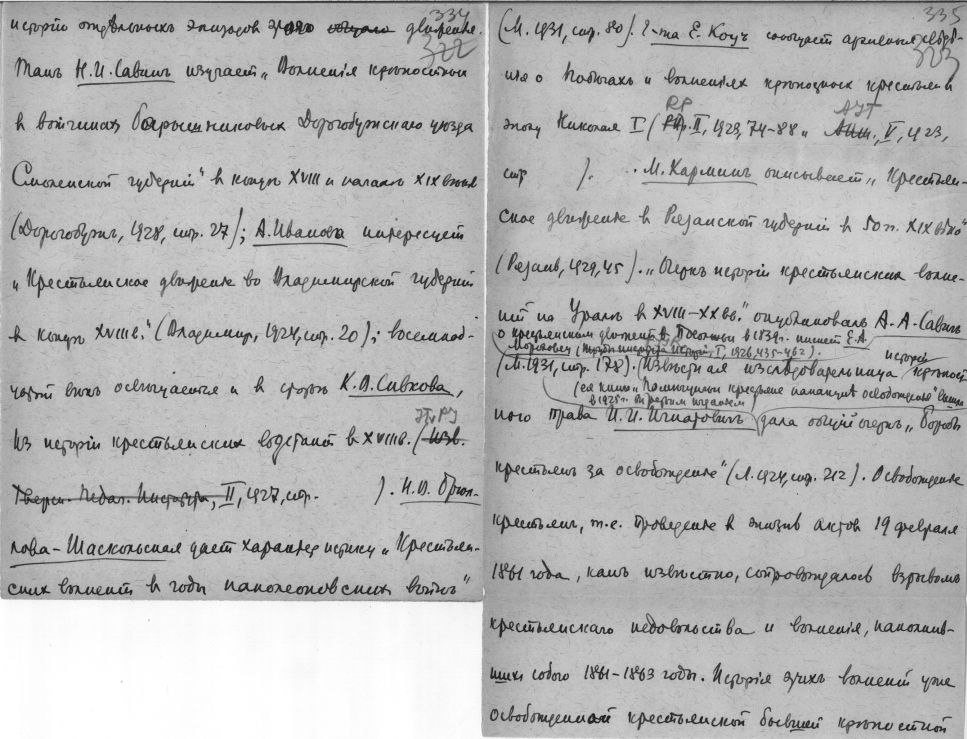 334
322
исторіи отдѣльныхъ эпизодовъ этого общаго движенія.
Такъ Н.И.Савинъ изучаетъ „Волненія крѣпостныхъ
въ вотчинахъ Барышниковыхъ Дорогобужскаго уѣзда
Смоленской губерніи" въ концѣ XVIII и началѣ XIX вѣков
(Дорогобужъ, 1928, стр. 27); А.Иванова интересуетъ
„Крестьянское движеніе во Владимирской губерніи
въ концѣ XVIIIв." (Владимир, 1924, стр. 20); восемнад-
цатый вѣкъ освѣщается и въ статьѣ К.В.Сивкова,
Из исторіи крестьянскихъ возстаній въ XVIIIв. (Изв.
Тверск. Педаг. Института, II, 1927, стр. ). Н.В. Брюл-
лова-Шаскольская даетъ характеристику „Крестьян-
ских волненій въ годы наполеоновскихъ войнъ"
335
323
(М. 1931, стр. 80). Е. Коцъ сообщаетъ архивныя свѣдѣ-
нія о побѣгахъ и волненіяхъ крѣпостныхъ крестьянъ въ
эпоху Николая I ( II, 1923, 74-88 и V, 1923,
стр ). М.Карминъ описываетъ „Крестьян-
ское движеніе въ Рязанской губерніи въ 50 гг. XIX вѣка"
(Рязань, 1929, 45). „Очеркъ исторіи крестьянских волне-
ній на Уралѣ въ XVIII-XX вв." опубликовалъ А.А.Савичъ
о крестьянскомъ движеніи въ 1839г. пишетъ Е.А.
Мороховец (Труды института исторіи, I, 1926, 435-462).
(М. 1931, стр. 178). Извѣстная изслѣдовательница исторіи крѣпост
(ея книга „Помѣщичьи крестьяне наканунѣ освобожденія" вышла
въ 1925г. третьим изданіем
ного права И.И.Игнатовичъ дала общій очеркъ „Борьба
крестьянъ за освобожденіе" (Л. 1924, стр. 212). Освобожденіе
крестьянъ, т.е. проведеніе въ жизнь актов 19 февраля
1861 года, какъ извѣстно, сопровождалось взрывомъ
крестьянскаго недовольства и волненія, наполнив-
шихъ собою 1861-1863 годы. Исторія этихъ волненій уже
освобожденной крестьянской бывшей крѣпостной